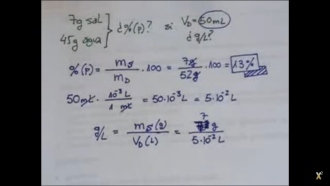 7g sal
45g agua } ¿%(p)? si V_D = 50mL
¿g/L?
%(p) = m_s/m_D · 100 = 7g/52g · 100 = 13%
50 mL · 10⁻³ L / 1 mL = 50·10⁻³ L = 5·10⁻² L
g/L = m_s(g)/V_D(L) = 7 g / 5·10⁻² L